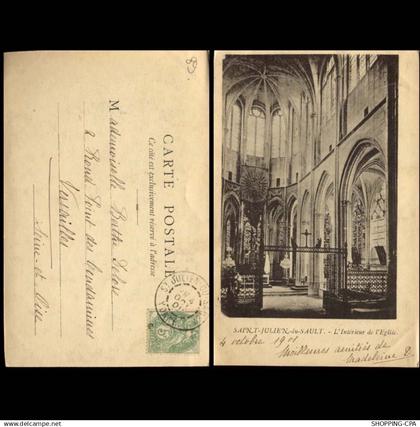 89
CARTE POSTALE
Ce côté est exclusivement réservé à l'adresse
Mademoiselle Berthe
Rond Point des Gendarmes
Versailles
Seine-et-Oise
ST JULIEN-DU-SAULT
SAINT-JULIEN-du-SAULT. - L'Intérieur de l'Eglise.
4 octobre 1901
Meilleures amitiés de
Madeleine
akpool.com - SHOPPING-CPA